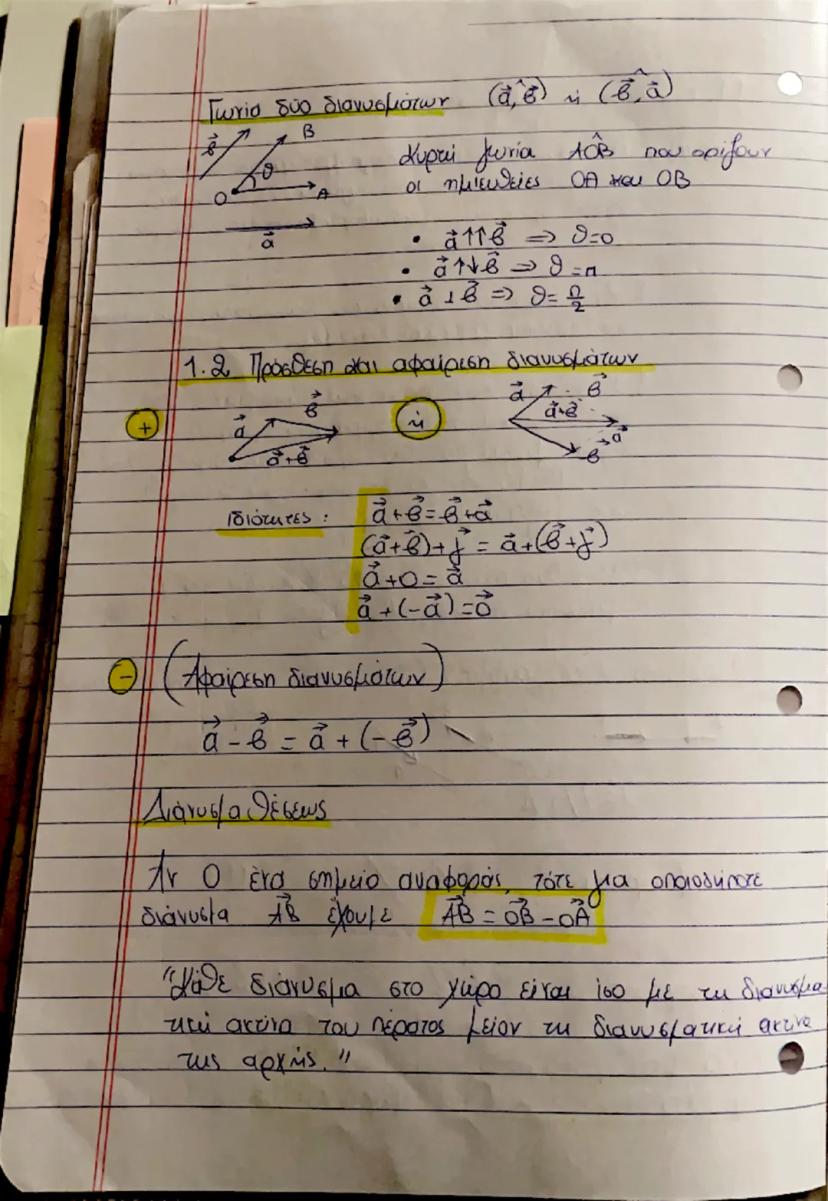 Γωνία δύο διανυσμάτων (α⃗,β⃗)^ ή (β⃗,α⃗)^
β⃗ B
Κυρτή γωνία AÔB που ορίζουν
θ
O A
οι ημιευθείες OA και OB
α⃗
• α⃗↑↑β⃗ => θ=0
• α⃗↑↓β⃗ => θ=π
• α⃗⊥β⃗ => θ=π/2
1.2 Πρόσθεση και αφαίρεση διανυσμάτων
+ α⃗ β⃗ α⃗+β⃗ ή α⃗ β⃗ α⃗+β⃗ α⃗ β⃗
Ιδιότητες: α⃗+β⃗=β⃗+α⃗
(α⃗+β⃗)+γ⃗ = α⃗+(β⃗+γ⃗)
α⃗+0=α⃗
α⃗+(-α⃗)=0⃗
- (Αφαίρεση διανυσμάτων)
α⃗-β⃗ = α⃗+(-β⃗)
Διάνυσμα θέσεως
Αν O ένα σημείο αναφοράς, τότε για οποιοδήποτε
διάνυσμα AB⃗ έχουμε AB⃗ = OB⃗ - OA⃗
"Κάθε διάνυσμα στο χώρο είναι ίσο με τη διανυσμα
τική ακτίνα του πέρατος μείον τη διανυσματική ακτίνα
της αρχής."